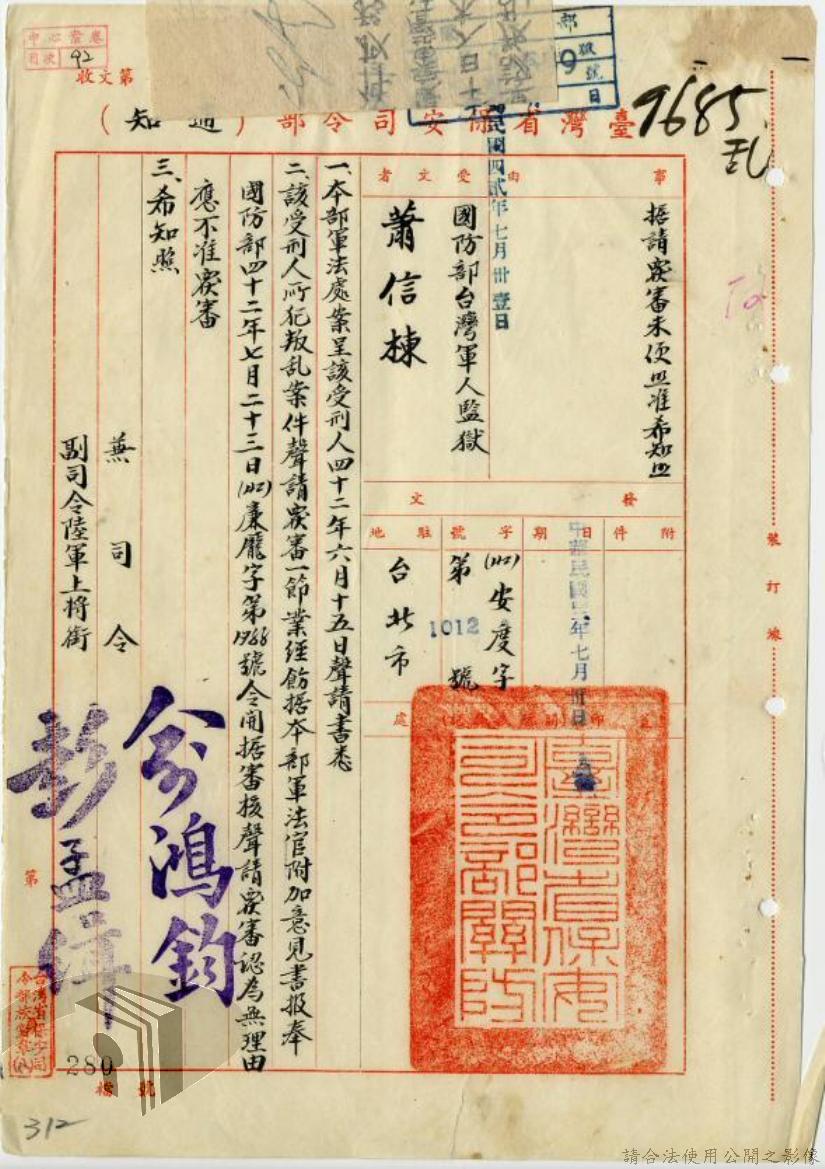 中心檔卷
目次 92
收文第
部
號
9
日
9685
臺灣省保安司令部（通知）
民國四貳年七月卅壹日
事由
据請覆審未便照准希知照
受文者
國防部台灣軍人監獄
蕭信棟
發文
附件
日期
中華民國四二年七月卅日
字號
(42)安度字
第1012號
駐地
台北市
一、本部軍法處案呈該受刑人四十二年六月十五日聲請書悉
二、該受刑人所犯叛乱案件聲請覆審一節業經飭据本部軍法官附加意見書报奉
國防部四十二年七月二十三日(42)廉龐字第1966號令開据審核聲請覆審認為無理由
應不准覆審
三、希知照
兼司令
俞鴻鈞
副司令陸軍上將銜
彭孟緝
臺灣省保安司令部關防
裝訂線
第
280
檔號
312
請合法使用公開之影像